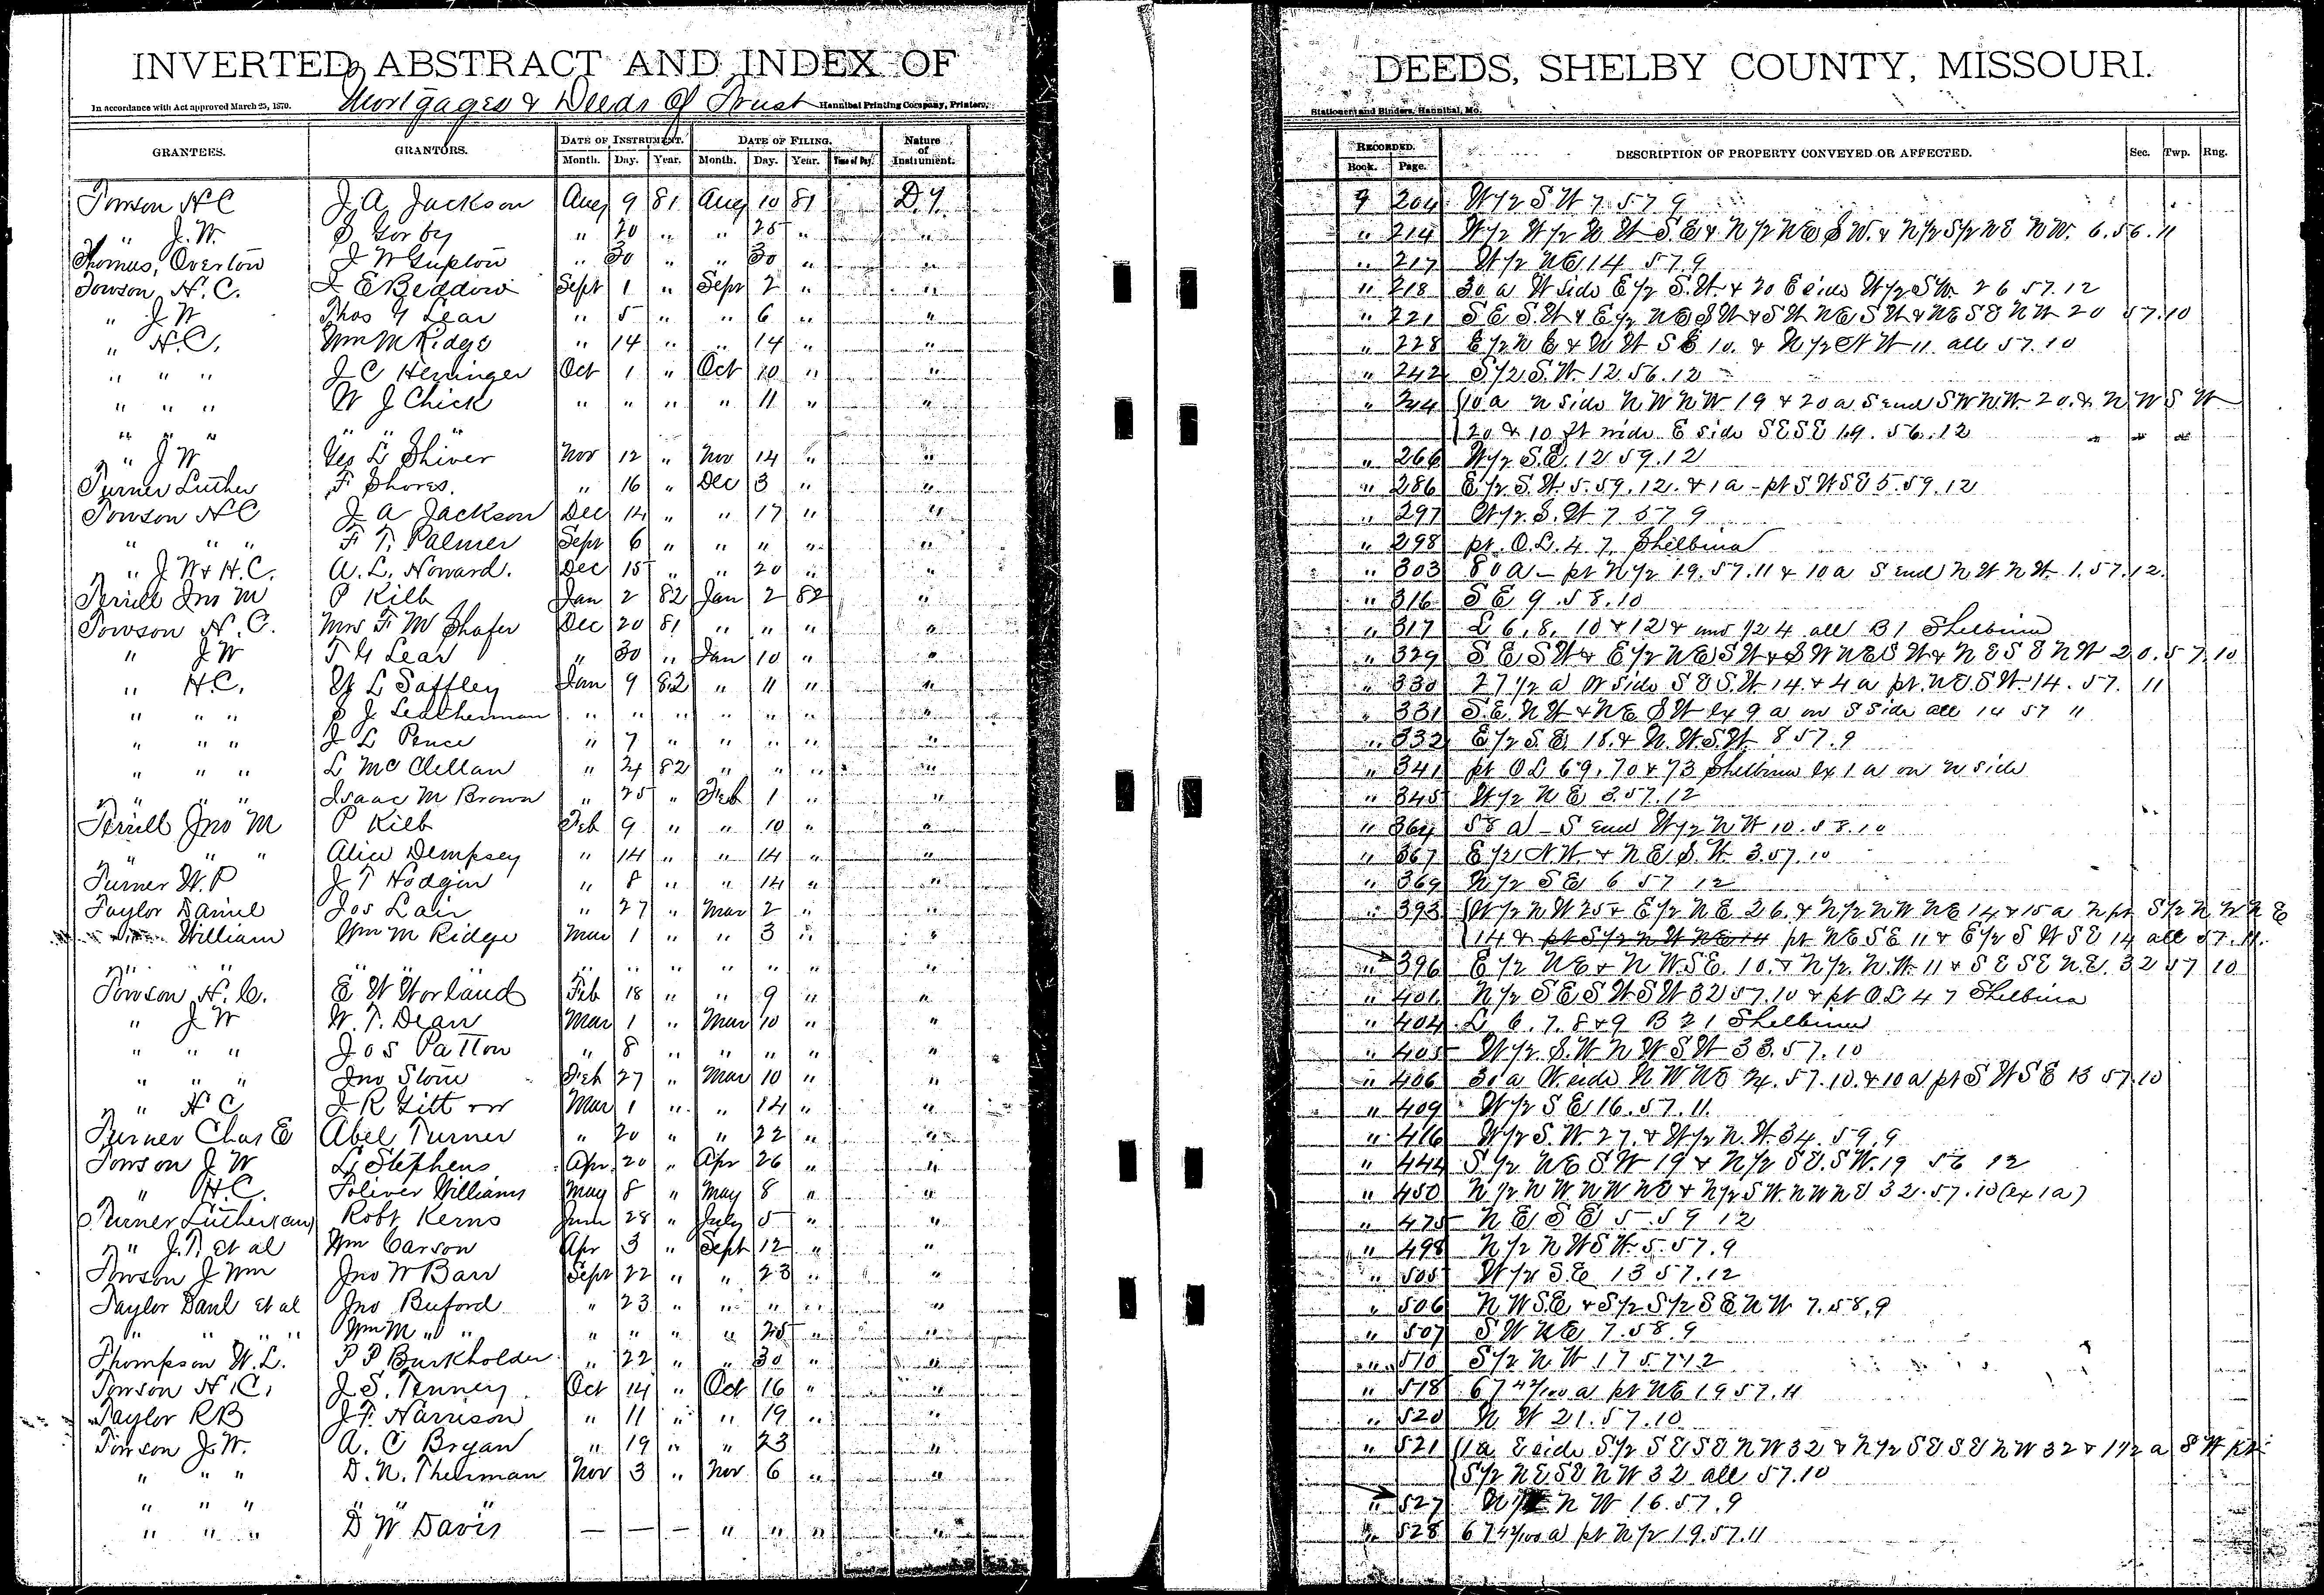 INVERTED ABSTRACT AND INDEX OF DEEDS, SHELBY COUNTY, MISSOURI.
In accordance with Act approved March 25, 1870. Mortgages & Deeds of Trust Hannibal Printing Company, Printers, Stationers and Binders, Hannibal, Mo.
GRANTEES. GRANTORS. DATE OF INSTRUMENT. DATE OF FILING. Nature of Instrument. RECORDED. DESCRIPTION OF PROPERTY CONVEYED OR AFFECTED. Sec. Twp. Rng.
Month. Day. Year. Month. Day. Year. Time of Day. Book. Page.
Towson H C J. A. Jackson Aug 9 81 Aug 10 81 D.T. 9 204 W 1/2 S W 7 57 9
" J. W. Gorby " 20 " " 25 " " " 214 W 1/2 W 1/2 N W S.E & N 1/2 N E S W. & N 1/2 S 1/2 N E N W. 6.56.11
Thomas, Overton J W Gupton " 30 " " 30 " " " 217 W 1/2 N E 14 57.9
Towson, H. C. J E Beddow Sept 1 " Sept 2 " " " 218 30 a W side E 1/2 S. W. & 20 E side W 1/2 S W. 26 57.12
" J W Thos Y Lear " 5 " " 6 " " " 221 S E S. W & E 1/2 N E S W & S W N E S W & N E S E N W 20 57.10
" H. C. Wm M Ridge " 14 " " 14 " " " 228 E 1/2 N E & N W S E 10. & N 1/2 N W 11 all 57.10
" " " J C Heninger Oct 1 " Oct 10 " " " 242 S 1/2 S. W. 12.56.12
" " " W J Chick " " " " 11 " " " 244 10 a N side N W N W 19 & 20 a S end S W N.W. 20. & N W S W
" " " " " 20 & 10 ft wide E side S E S E 19. 56.12
" J W Geo L Shiver Nov 12 " Nov 14 " " " 266 W 1/2 S. E. 12 59.12
Turner Luther F Shores. " 16 " Dec 3 " " " 286 E 1/2 S. W. 5.59.12. & 1 a - pt S W S E 5.59.12
Towson H C J A Jackson Dec 14 " " 17 " " " 297 W 1/2 S. W 7 57 9
" " " F T. Palmer Sept 6 " " " " " " 298 pt. O. L. 47 Shelbina
" J W & H. C. A. L. Howard. Dec 15 " " 20 " " " 303 80 a - pt N 1/2 19.57.11 & 10 a S end N W N W. 1.57.12.
Terrill Jno M P Kilb Jan 2 82 Jan 2 82 " " 316 S E 9 58.10
Towson H. C. Mrs F M Shafer Dec 20 81 " " " " " 317 L 6, 8, 10 & 12 & und 1/2 4 all B 1 Shelbina
" J W T Y Lear " 30 " Jan 10 " " " 329 S E S W & E 1/2 N E S W & S W N E S W & N E S E N W 20.57.10
" H. C. L Saffley Jan 9 82 " 11 " " " 330 27 1/2 a W side S E S. W 14. & 4 a pt. N E S W. 14. 57. 11
" " " S J Leatherman " " " " " " " " 331 S. E. N W & N E S W ex 9 a on S side all 14 57 "
" " " J L Pence " 7 " " " " " " 332 E 1/2 S. E. 18. & N. W. S. W. 8 57.9
" " " L McClellan " 24 82 " " " " " 341 pt O L 69, 70 & 73 Shelbina ex 1 a on N side
" " " Isaac M Brown " 25 " Feb 1 " " " 345 W 1/2 N E 3.57.12
Terrill Jno M P Kilb Feb 9 " " 10 " " " 364 58 a - S end W 1/2 N W 10.58.10
" " " Alice Dempsey " 14 " " 14 " " " 367 E 1/2 N W & N E S. W. 3.57.10
Turner W. P J T Hodgin " 8 " " 14 " " " 369 N 1/2 S E 6 57 12
Taylor Daniel Jos Lair " 27 " Mar 2 " " " 393 W 1/2 N W 25 & E 1/2 N E 26. & N 1/2 N W N E 14 & 15 a N pt S 1/2 N W N E
" William Wm M Ridge Mar 1 " " 3 " " 14 & pt S 1/2 N W N E 14 pt N E S E 11 & E 1/2 S W S E 14 all 57.11.
" " " " " " " " " " " 396 E 1/2 N E & N W. S E. 10. & N 1/2 N. W. 11 & S E S E N. E. 32 57 10
Towson H. C. E W Worland Feb 18 " " 9 " " " 401 N 1/2 S E S W S W 32 57.10 & pt O L 47 Shelbina
" J W W. T. Dean Mar 1 " Mar 10 " " " 404 L 6. 7. 8 & 9 B 21 Shelbina
" " " Jos Patton " 8 " " " " " " 405 W 1/2 S. W N W S W 33.57.10
" " " Jno Stone Feb 27 " Mar 10 " " " 406 30 a W side N W N E 24. 57.10. & 10 a pt S W S E 13 57.10
" H C Mar 1 " " 14 " " " 409 W 1/2 S E 16.57.11.
Turner Chas E Abel Turner " 20 " " 22 " " " 416 W 1/2 S. W. 27. & W 1/2 N. W. 34. 59.9
Towson J W L Stephens Apr 20 " Apr 26 " " " 444 S 1/2 N E S W 19 & N 1/2 S E. S W. 19 56 12
" H. C. Toliver Williams May 8 " May 8 " " " 450 N 1/2 N W N W N E & N 1/2 S W. N W N E 32.57.10 (ex 1 a)
Turner Luther Robt Kerns June 28 " July 5 " " " 475 N E S E 5.59 12
" J. T. et al Wm Carson Apr 3 " Sept 12 " " " 498 N 1/2 N W S W. 5.57.9
Towson J Wm Jno W Barr Sept 22 " " 23 " " " 505 W 1/2 S. E 13 57.12
Taylor Danl et al Jno Buford " 23 " " " " " " 506 N W S. E & S 1/2 S 1/2 S E N W 7.58.9
" " " " Wm M " " " " " " 25 " " " 507 S W N E. 7.58.9
Thompson W. L. P P Burkholder " 22 " " 30 " " " 510 S 1/2 N. W. 17 57 12
Towson H. C. J. S. Tenney Oct 14 " Oct 16 " " " 518 67 42/100 a pt N E 19 57.11
Taylor R B J. F. Harrison " 11 " " 19 " " " 520 N W 21.57.10
Towson J. W. A. C Bryan " 19 " " 23 " " 521 1 a E side S 1/2 S E S E N W 32 & N 1/2 S E S E N W 32 & 1 1/2 a S W pt
" " " D. N. Thurman Nov 3 " Nov 6 " " S 1/2 N E S E N W 32 all 57.10
" " " " " " " 527 N W 16.57.9
" " " D W Davis — — — " " " " " 528 67 42/100 a pt N 1/2 19.57.11